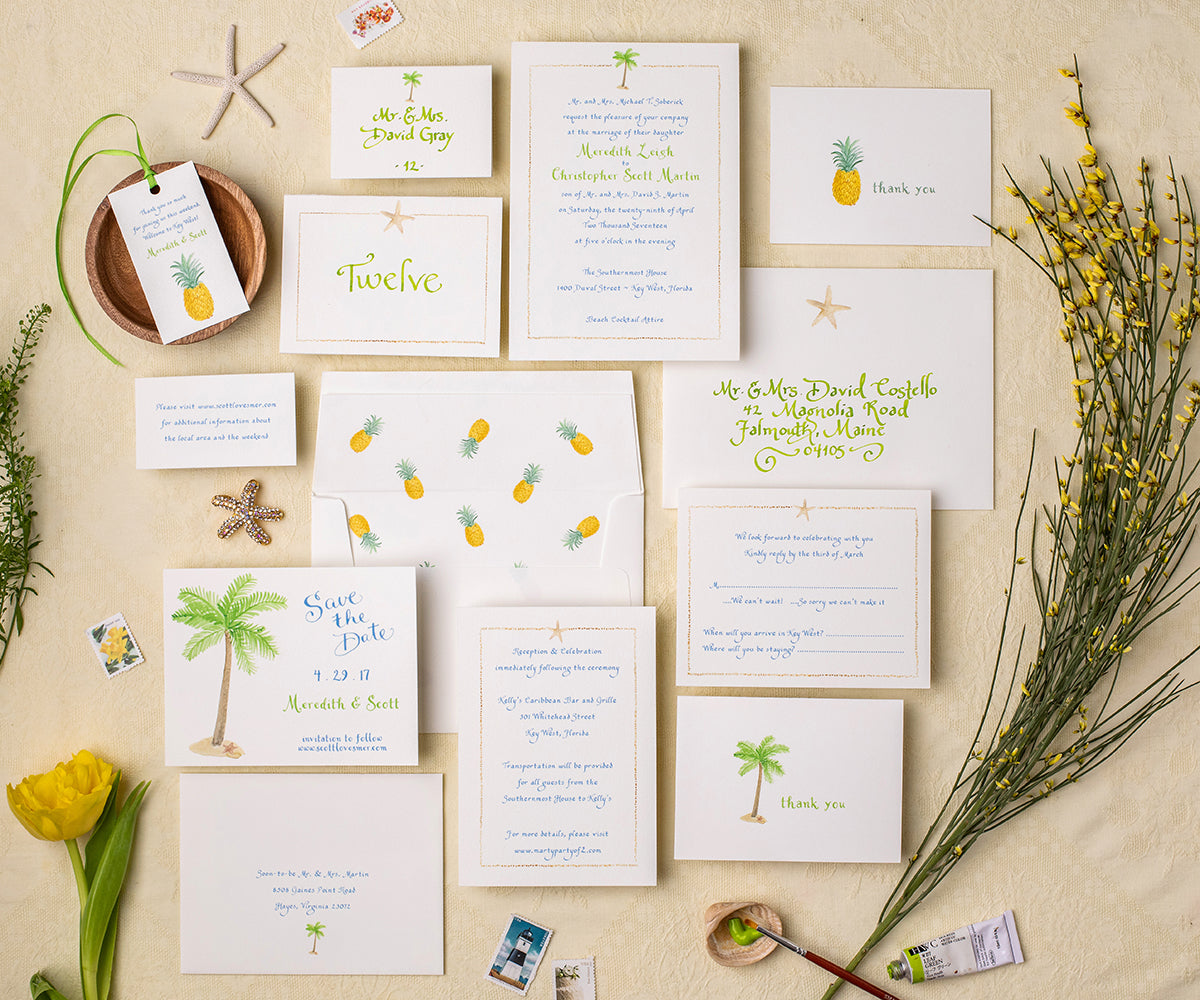 Mr. & Mrs.
David Gray
- 12 -
Mr. and Mrs. Michael T. Soberick
request the pleasure of your company
at the marriage of their daughter
Meredith Leigh
to
Christopher Scott Martin
son of Mr. and Mrs. David S. Martin
on Saturday, the twenty-ninth of April
Two Thousand Seventeen
at five o'clock in the evening
The Southernmost House
1400 Duval Street ~ Key West, Florida
Beach Cocktail Attire
thank you
Thank you so much
for joining us this weekend.
Welcome to Key West!
Meredith & Scott
Twelve
Mr. & Mrs. David Costello
42 Magnolia Road
Falmouth, Maine
04105
Please visit www.scottlovesmer.com
for additional information about
the local area and the weekend
We look forward to celebrating with you
Kindly reply by the third of March
M
....We can't wait! ....So sorry we can't make it
When will you arrive in Key West?
Where will you be staying?
Save
the
Date
4 . 29 . 17
Meredith & Scott
invitation to follow
www.scottlovesmer.com
Reception & Celebration
immediately following the ceremony
Kelly's Caribbean Bar and Grille
301 Whitehead Street
Key West, Florida
Transportation will be provided
for all guests from the
Southernmost House to Kelly's
For more details, please visit
www.martypartyof2.com
thank you
Soon-to-be Mr. & Mrs. Martin
8508 Gaines Point Road
Hayes, Virginia 23072
HWC
LEAF
GREEN